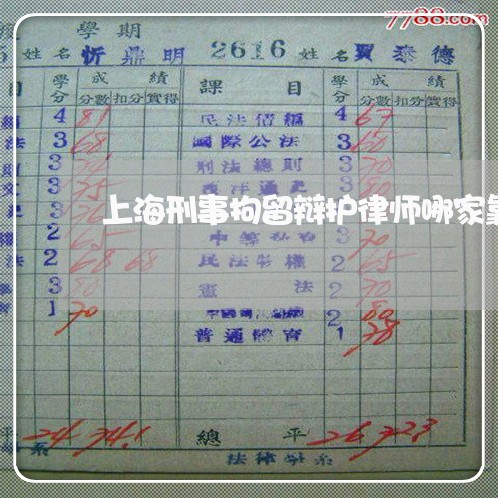 7788.com
學期
姓名 忻鼎明 2616 姓名 賈泰德
目 學分 成績 課目 學分 成績
分數 扣分 實得 分數 扣分 實得
4 81 民法債編 4 67
法 3 68 國際公法 3 60
3 刑法總則 3 70
文 3 75 西洋通史 3 80
上海刑事拘留辩护律师哪家
權 2 65 3 70
法 2 68 68 民法物權 2 65
3 80 憲法 2 70
育 1 70 2 80
普通體育 1 78
平 24 74.1 總平 26 72.3
系 法律學系